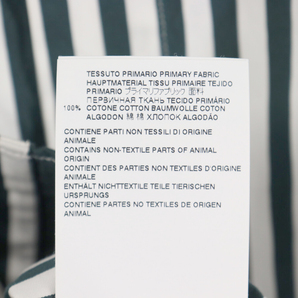 TESSUTO PRIMARIO PRIMARY FABRIC
HAUPTMATERIAL TISSU PRIMAIRE TEJIDO
PRIMARIO プライマリファブリック 面料
ПЕРВИЧНАЯ ТКАНЬ TECIDO PRIMÁRIO
100% COTONE COTTON BAUMWOLLE COTON
ALGODON 綿 棉 ХЛОПОК ALGODÃO
CONTIENE PARTI NON TESSILI DI ORIGINE
ANIMALE
CONTAINS NON-TEXTILE PARTS OF ANIMAL
ORIGIN
CONTIENT DES PARTIES NON TEXTILES D'ORIGINE
ANIMALE
ENTHÄLT NICHTTEXTILE TEILE TIERISCHEN
URSPRUNGS
CONTIENE PARTES NO TEXTILES DE ORIGEN
ANIMAL